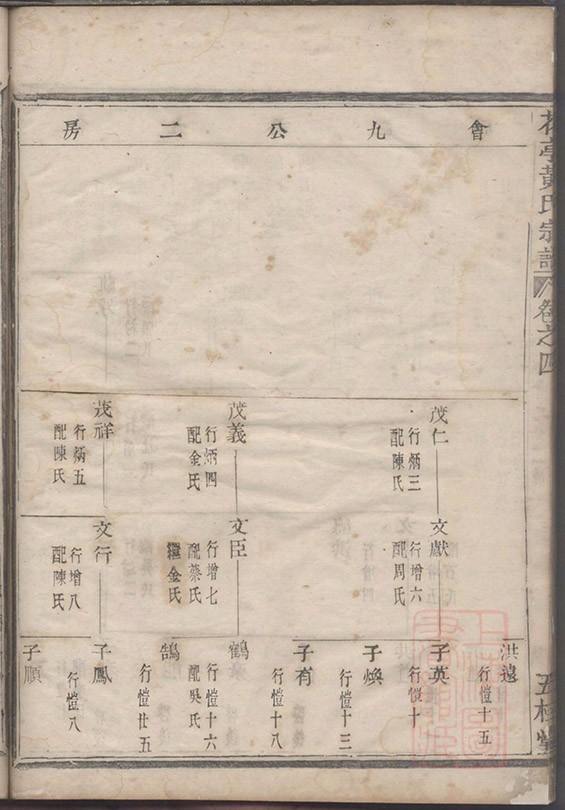 亭黃氏宗譜 卷之四
會九公二房
茂仁
行炳三
配陳氏
茂義
行炳四
配金氏
茂祥
行炳五
配陳氏
文獻
行增六
配周氏
文臣
行增七
配蔡氏
繼金氏
文行
行增八
配陳氏
洪遠
行愷十五
子英
行愷十
子煥
行愷十三
子有
行愷十八
鶴
行愷十六
配吳氏
鵠
行愷廿五
子鳳
行愷八
子順
五桂堂